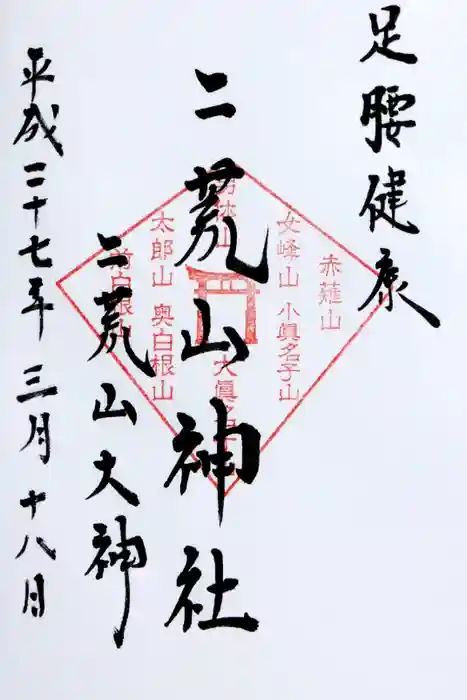 足腰健康
赤薙山
女峰山 小眞名子山
二荒山神社
男体山 大眞名子山
太郎山 奥白根山
前白根山
二荒山大神
平成二十七年 三月 十八日